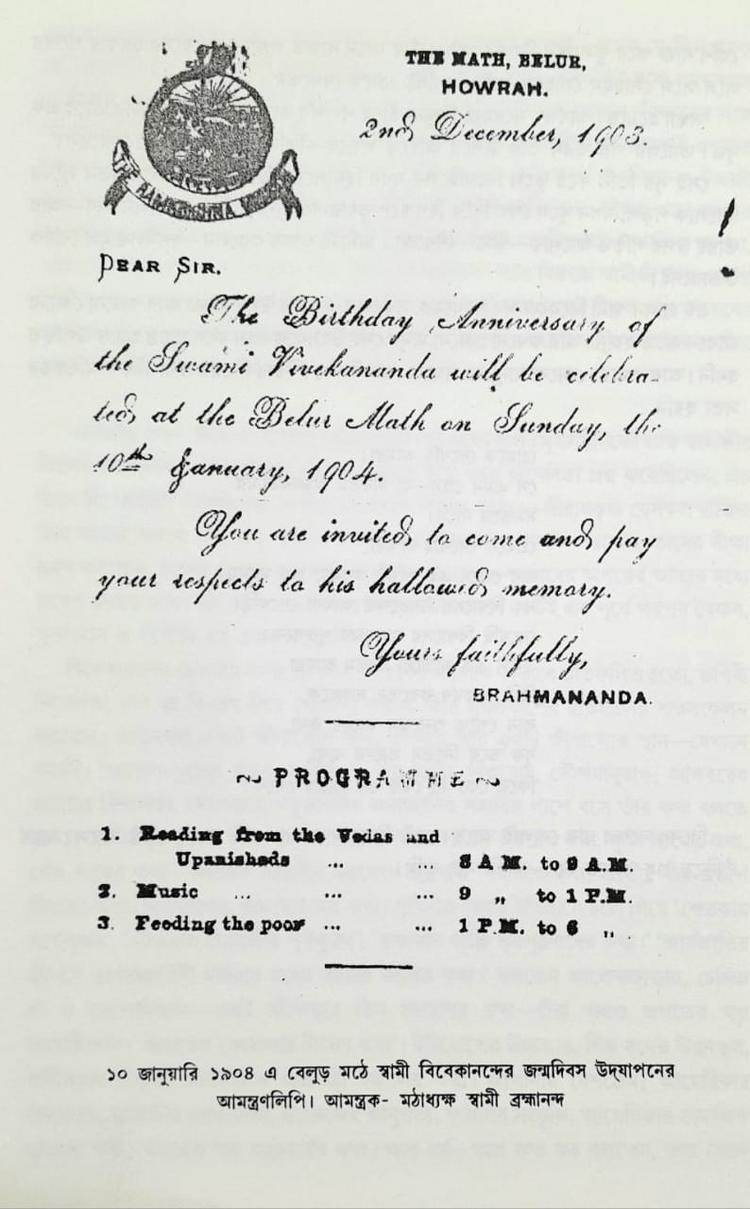 THE MATH, BELUR,
HOWRAH.
2nd December, 1903.
THE RAMKRISHNA
DEAR SIR.
The Birthday Anniversary of
the Swami Vivekananda will be celebra-
ted at the Belur Math on Sunday, the
10th January, 1904.
You are invited to come and pay
your respects to his hallowed memory.
Yours faithfully,
BRAHMANANDA.
~ PROGRAMME ~
1. Reading from the Vedas and
Upanishads ... 8 A.M. to 9 A.M.
2. Music ... ... ... 9 „ to 1 P.M.
3. Feeding the poor ... ... 1 P.M. to 6 „
১০ জানুয়ারি ১৯০৪ এ বেলুড় মঠে স্বামী বিবেকানন্দের জন্মদিবস উদ্‌যাপনের
আমন্ত্রণলিপি। আমন্ত্রক- মঠাধ্যক্ষ স্বামী ব্রহ্মানন্দ